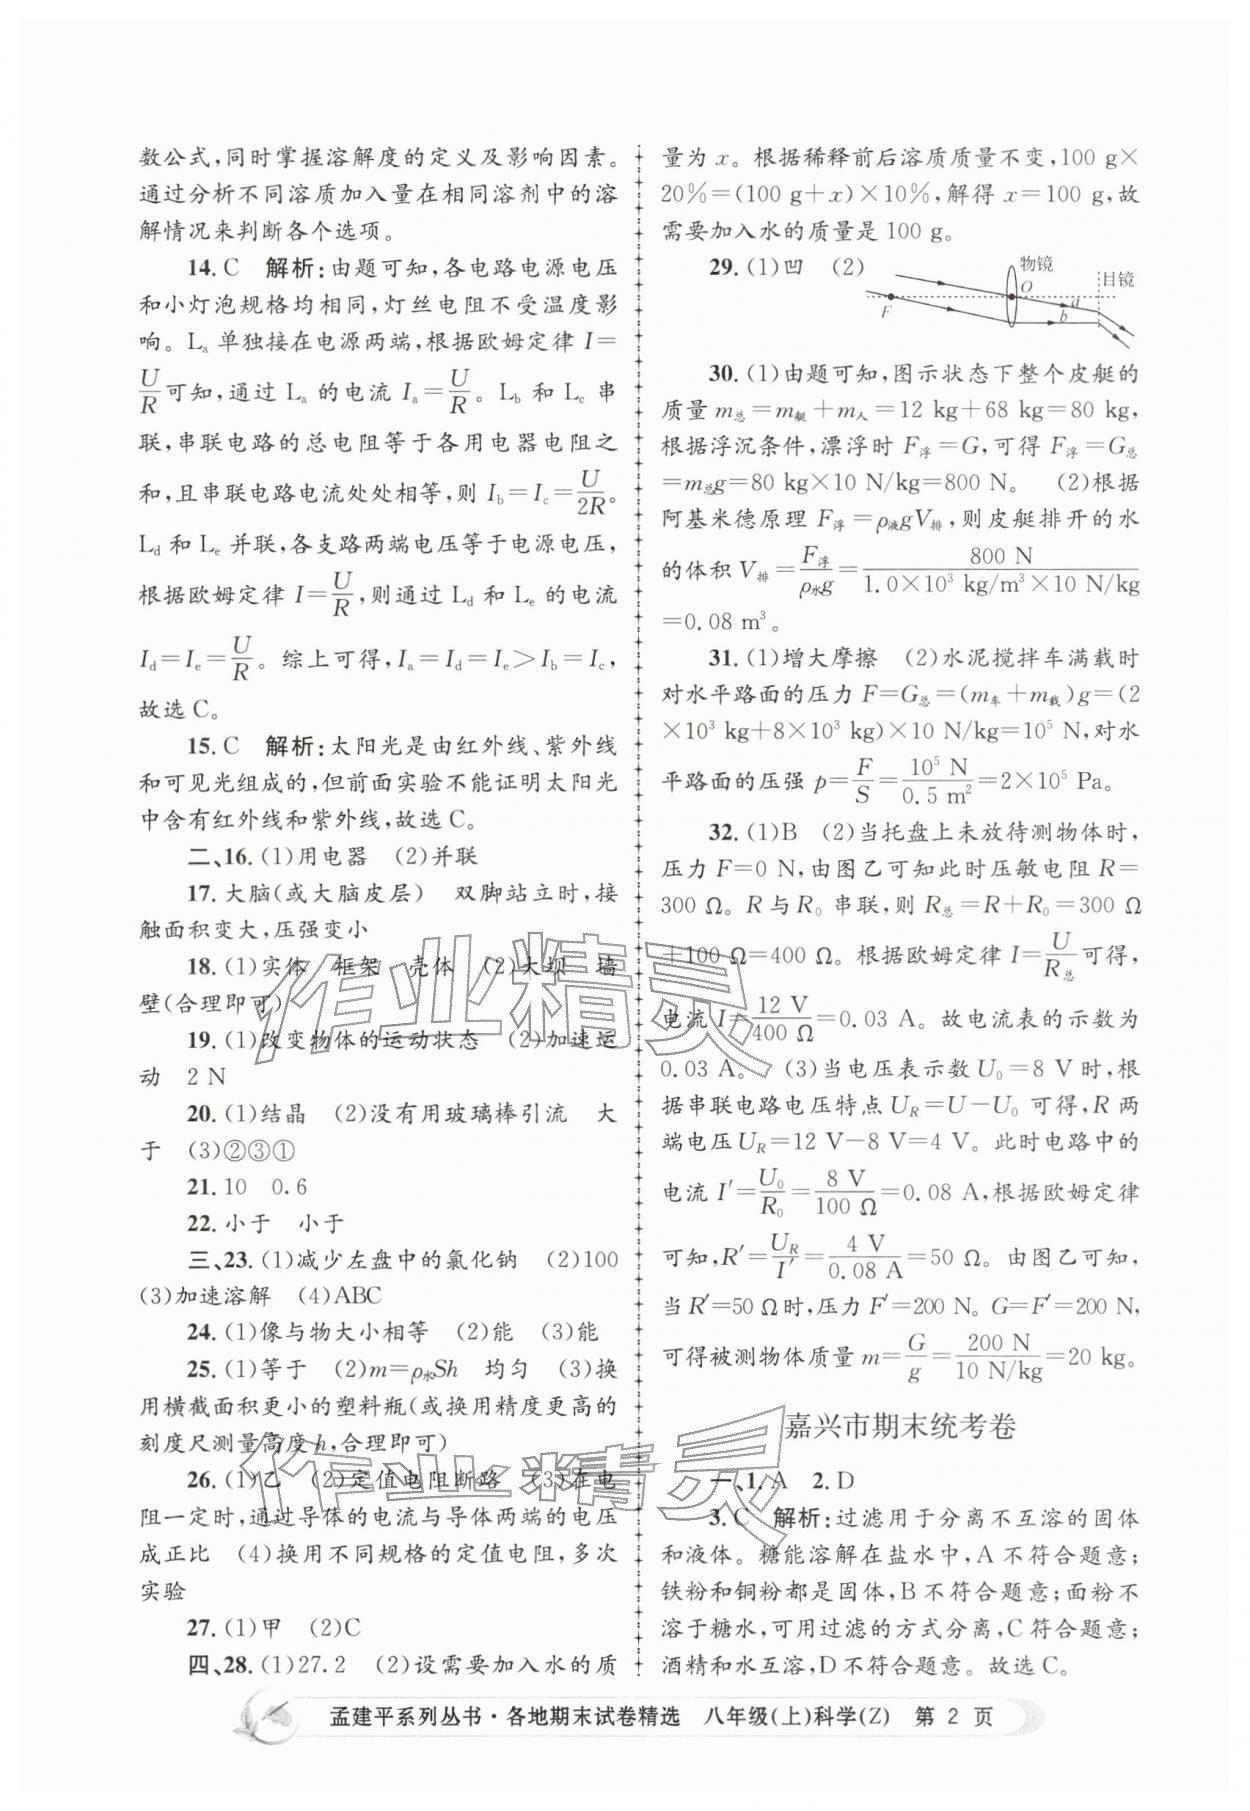 数公式,同时掌握溶解度的定义及影响因素。
通过分析不同溶质加入量在相同溶剂中的溶
解情况来判断各个选项。
14.C 解析:由题可知,各电路电源电压
和小灯泡规格均相同,灯丝电阻不受温度影
响。La 单独接在电源两端,根据欧姆定律 I=
U/R可知,通过 La 的电流 Ia=U/R。Lb 和 Lc 串
联,串联电路的总电阻等于各用电器电阻之
和,且串联电路电流处处相等,则 Ib=Ic=U/2R。
Ld 和 Le 并联,各支路两端电压等于电源电压,
根据欧姆定律 I=U/R,则通过 Ld 和 Le 的电流
Id=Ie=U/R。综上可得,Ia=Id=Ie>Ib=Ic,
故选 C。
15.C 解析:太阳光是由红外线、紫外线
和可见光组成的,但前面实验不能证明太阳光
中含有红外线和紫外线,故选 C。
二、16.(1)用电器 (2)并联
17.大脑(或大脑皮层) 双脚站立时,接
触面积变大,压强变小
18.(1)实体 框架 壳体 (2)大坝 墙
壁(合理即可)
19.(1)改变物体的运动状态 (2)加速运
动 2 N
20.(1)结晶 (2)没有用玻璃棒引流 大
于 (3)②③①
21.10 0.6
22.小于 小于
三、23.(1)减少左盘中的氯化钠 (2)100
(3)加速溶解 (4)ABC
24.(1)像与物大小相等 (2)能 (3)能
25.(1)等于 (2)m=ρ水Sh 均匀 (3)换
用横截面积更小的塑料瓶(或换用精度更高的
刻度尺测量高度 h,合理即可)
26.(1)乙 (2)定值电阻断路 (3)在电
阻一定时,通过导体的电流与导体两端的电压
成正比 (4)换用不同规格的定值电阻,多次
实验
27.(1)甲 (2)C
四、28.(1)27.2 (2)设需要加入水的质
量为 x。根据稀释前后溶质质量不变,100 g×
20%=(100 g+x)×10%,解得 x=100 g,故
需要加入水的质量是 100 g。
29.(1)凹 (2)
物镜
目镜
O
F
a
b
30.(1)由题可知,图示状态下整个皮艇的
质量 m总=m艇+m人=12 kg+68 kg=80 kg,
根据浮沉条件,漂浮时 F浮=G,可得 F浮=G总
=m总g=80 kg×10 N/kg=800 N。 (2)根据
阿基米德原理 F浮=ρ液gV排,则皮艇排开的水
的体积 V排=F浮/ρ水g=800 N/1.0×10³ kg/m³×10 N/kg
=0.08 m³。
31.(1)增大摩擦 (2)水泥搅拌车满载时
对水平路面的压力 F=G总=(m车+m载)g=(2
×10³ kg+8×10³ kg)×10 N/kg=10⁵ N,对水
平路面的压强 p=F/S=10⁵ N/0.5 m²=2×10⁵ Pa。
32.(1)B (2)当托盘上未放待测物体时,
压力 F=0 N,由图乙可知此时压敏电阻 R=
300 Ω。R 与 R₀ 串联,则 R总=R+R₀=300 Ω
+100 Ω=400 Ω。根据欧姆定律 I=U/R总可得,
电流 I=12 V/400 Ω=0.03 A。故电流表的示数为
0.03 A。 (3)当电压表示数 U₀=8 V 时,根
据串联电路电压特点 UR=U-U₀ 可得,R 两
端电压 UR=12 V-8 V=4 V。此时电路中的
电流 I′=U₀/R₀=8 V/100 Ω=0.08 A,根据欧姆定律
可知,R′=UR/I′=4 V/0.08 A=50 Ω。由图乙可知,
当 R′=50 Ω时,压力 F′=200 N。G=F′=200 N,
可得被测物体质量 m=G/g=200 N/10 N/kg=20 kg。
嘉兴市期末统考卷
一、1.A 2.D
3.C 解析:过滤用于分离不互溶的固体
和液体。糖能溶解在盐水中,A 不符合题意;
铁粉和铜粉都是固体,B 不符合题意;面粉不
溶于糖水,可用过滤的方式分离,C 符合题意;
酒精和水互溶,D 不符合题意。故选 C。
孟建平系列丛书·各地期末试卷精选 八年级(上)科学(Z) 第 2 页
作业精灵
作业精灵